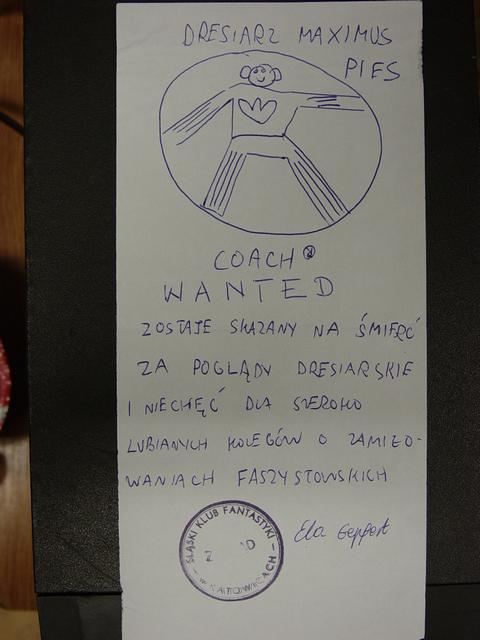 DRESIARZ MAXIMUS
PIES
COACH ®
WANTED
ZOSTAJE SKAZANY NA ŚMIERĆ
ZA POGLĄDY DRESIARSKIE
I NIECHĘĆ DLA SZEROKO
LUBIANYCH KOLEGÓW O ZAMIŁO-
WANIACH FASZYSTOWSKICH
ŚLĄSKI KLUB FANTASTYKI
W KATOWICACH
Ela Geppert